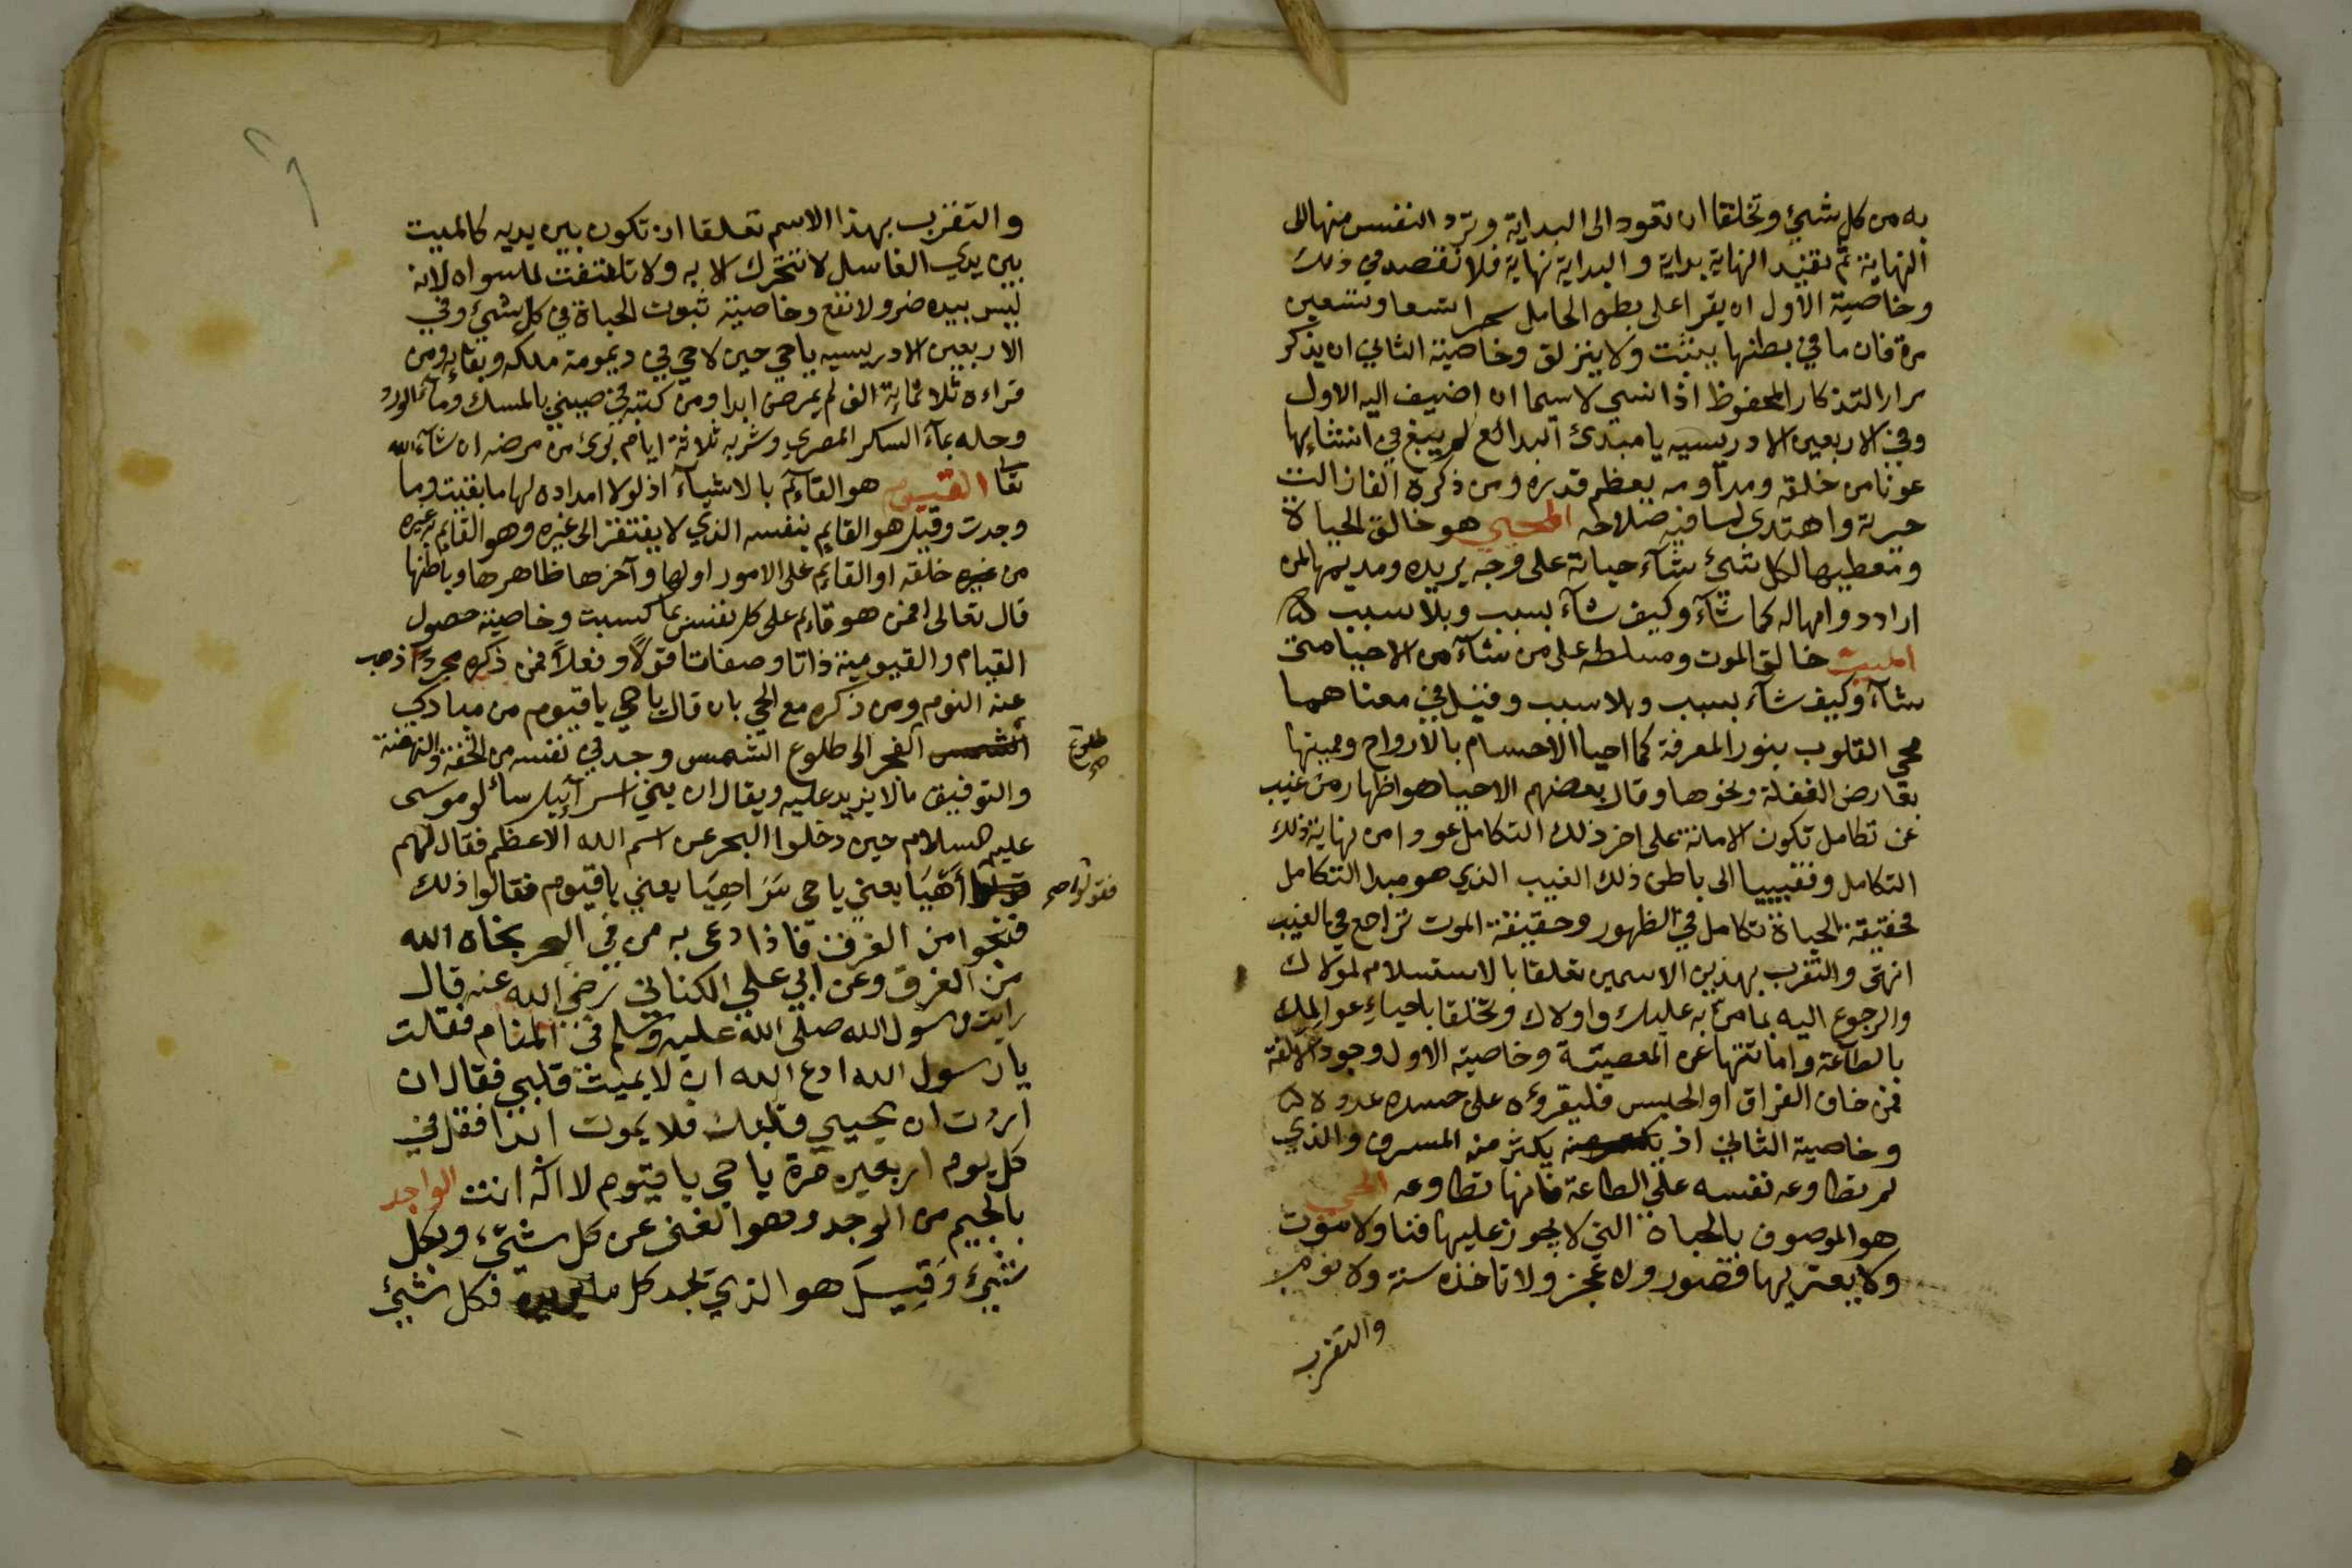 به من كل شيئ وتخلقا ان تعود الى البداية وترد النفس منها الى
النهاية ثم تفنيد النهاية بداية والبداية نهاية فلا تقصد في ذلك
وخاصية الاول ان يقرا على بطن الحامل سحرا تسعا وتسعين
مرة فان ما في بطنها يثبت ولا ينزلق وخاصية الثاني ان يذكر
مرارا لتذكار المحفوظ اذا نسي لاسيما ان اضيف اليه الاول
وفي الاربعين الادريسيه يا مبدئ البدائع لم يبغ في انشائها
عونا من خلقه ومداومه يعظم قدره ومن ذكره الفا زالت
حيرته واهتدى لما فيه صلاحه المحيي هو خالق الحياة
ومعطيها لكل شيئ شآء حياته على وجه يريده ومديمها لمن
اراد دوامها له كما شآء وكيف شآء بسبب وبلا سبب
المميت خالق الموت ومسلطه على من شآء من الاحيا متى
شآء وكيف شآء بسبب وبلا سبب وقيل في معناهما
محي القلوب بنور المعرفة كما احيا الاجسام بالارواح ومميتها
بعارض الغفلة ونحوها وقال بعضهم الاحيا هو اظهار من غيب
عن تكامل تكون الامانة على اخر ذلك التكامل عودا من نهاية ذلك
التكامل وتغييبا الى باطن ذلك الغيب الذي هو مبدا التكامل
فحقيقة الحياة تكامل في الظهور وحقيقة الموت تراجع في الغيب
انتهى والتقرب بهذين الاسمين تعلقا بالاستسلام لمولاك
والرجوع اليه بما من به عليك واولاك وتخلقا باحياء عوالمك
بالطاعة واماتتها عن المعصية وخاصية الاول وجود الالفة
فمن خاف الفراق او الحبس فليقرؤه على جسده عدده
وخاصية الثاني ان يكثر منه المسرف والذي
لم تطاوعه نفسه على الطاعة فانها تطاوعه الحي
هو الموصوف بالحياة التي لا يجوز عليها فنا ولا موت
ولا يعتريها قصور ولا عجز ولا تاخذه سنة ولا نوم
والتقرب
والتقرب بهذا الاسم تعلقا ان تكون بين يديه كالميت
بين يدي الغاسل لا تتحرك الا به ولا تلتفت لما سواه لانه
ليس بيده ضر ولا نفع وخاصيته ثبوت الحياة في كل شيئ وفي
الاربعين الادريسيه يا حي حين لا حي في ديمومة ملكه وبقايه ومن
قراءه ثلاثماية الف لم يمرض ابدا ومن كتبه في صيني بالمسك ومآء الورد
وحله بمآء السكر المصري وشربه ثلاثة ايام برئ من مرضه ان شآء الله
تعا القيوم هو القآئم بالاشيآء اذ لولا امداده لها ما بقيت وما
وجدت وقيل هو القايم بنفسه الذي لا يفتقر الى غيره وهو القايم به غيره
من غيره خلقه او القايم على الامور اولها وآخرها ظاهرها وباطنها
قال تعالى افمن هو قائم على كل نفس بما كسبت وخاصيته حصول
القيام والقيومية ذاتا وصفاتا قولاً وفعلاً فمن ذكره مجرداً ذهب
عنه النوم ومن ذكره مع الحي بان قال يا حي يا قيوم من مبادي
طلوع صح
الشمس الفجر الى طلوع الشمس وجد في نفسه من الخفة والنهضة
والتوفيق ما لا يزيد عليه ويقال ان بني اسرآئيل سألو موسى
عليه السلام حين دخلوا البحر عن اسم الله الاعظم فقال لهم
فقولوا صح
قولوا أهيا يعني يا حي شراهيا يعني يا قيوم فقالوا ذلك
فنجوا من الغرق فاذا دعى به من في البحر نجاه الله
من الغرق وعن ابي علي الكناني رضي الله عنه قال
رايت رسول الله صلى الله عليه وسلم في المنام فقلت
يا رسول الله ادع الله ان لا يميت قلبي فقال ان
اردت ان يحيي قلبك فلا يموت ابدا فقل في
كل يوم اربعين مرة يا حي يا قيوم لا اله انت الواجد
بالجيم من الوجد وهو الغنى عن كل شيئ وبكل
شيئ وقيل هو الذي يجد كل ما يريده فكل شيئ